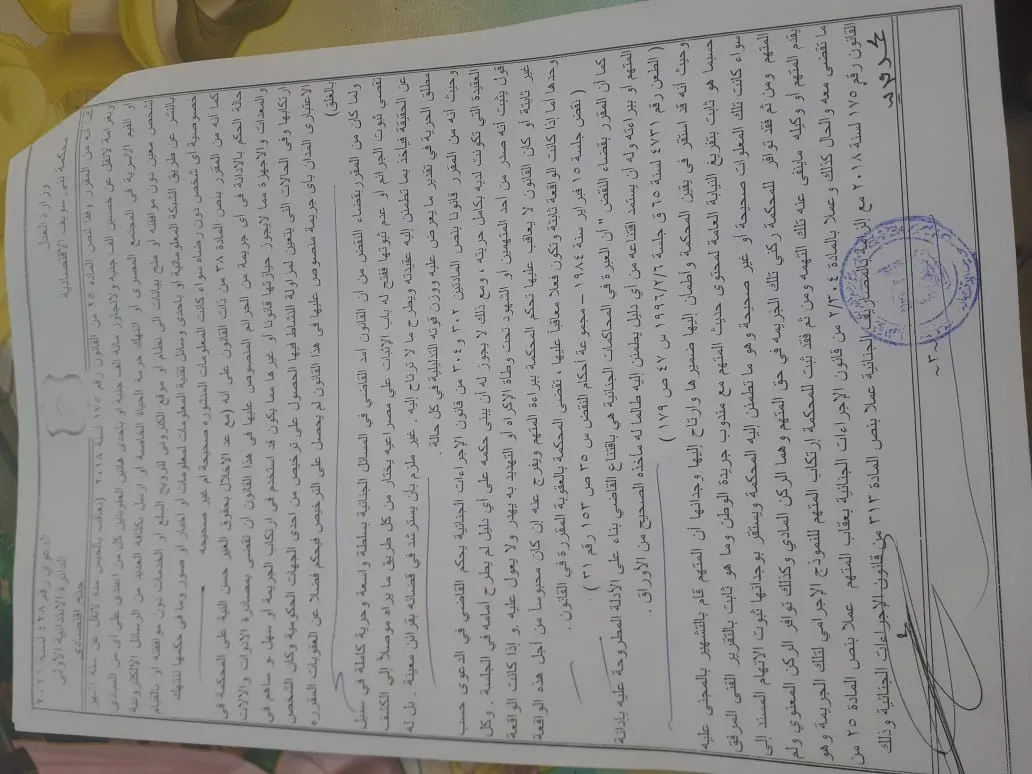 وزارة العدل
محكمة بني سويف الاقتصادية
الدعوى رقم ٤٢٨ لسنة ٢٠٢١
جنح اقتصادي
الدائرة الابتدائية الأولى
كما أنه من المقرر وفقا لنص المادة ٢٥ من القانون رقم ١٧٥ لسنة ٢٠١٨ (يعاقب بالحبس مدة لاتقل عن ستة أشهر
وبغرامة لاتقل عن خمسين الف جنيه ولاتجاوز مائة الف جنيه او بإحدى هاتين العقوبتين كل من اعتدى على أى من المبادئ
او القيم الاسرية فى المجتمع المصرى او انتهك حرمة الحياة الخاصة او ارسل بكثافة العديد من الرسائل الالكترونية
لشخص معين دون موافقته او منح بيانات الى نظام او موقع الكترونى لترويج السلع او الخدمات دون موافقته او بالقيام
بالنشر عن طريق الشبكة المعلوماتية او باحدى وسائل تقنية المعلومات لمعلومات أو أخبار أو صور وما فى حكمها تنتهك
خصوصية اى شخص دون رضاه سواء كانت المعلومات المنشوره صحيحة ام غير صحيحه
كما أنه من المقرر بنص المادة ٣٨ من ذات القانون على أنه (مع عدم الاخلال بحقوق الغير حسن النية على المحكمة فى
حالة الحكم بالادانة فى أى جريمة من الجرائم المنصوص عليها فى هذا القانون ان تقضى بمصادرة الادوات والالات
والمعدات والاجهزة مما لايجوز حيازتها قانونا أو غيرها مما يكون قد استخدم فى ارتكاب الجريمة أو سهل او ساهم فى
ارتكابها وفى الحالات التى يتعين لمزاولة النشاط فيها الحصول على ترخيص من احدى الجهات الحكومية وكان الشخص
الاعتبارى المدان بأى جريمة منصوص عليها فى هذا القانون لم يحصل على الترخيص فيحكم فضلا عن العقوبات المقرره
بالغلق)
ولما كان من المقرر بقضاء النقض من أن القانون أمد القاضي في المسائل الجنائية بسلطة واسعة وحرية كاملة في سبيل
تقصي ثبوت الجرائم أو عدم ثبوتها ففتح له باب الإثبات على مصراعيه يختار من كل طريق ما يراه موصلاً إلي الكشف
عن الحقيقة فيأخذ بما تطمئن إليه عقيدته ويطرح ما لا ترتاح إليه . غير ملزم بأن يسترشد في قضائه بقرائن معينة . بل له
مطلق الحرية في تقدير ما يعرض عليه ووزن قوته التدليلية في كل حالة
وحيث أنه من المقرر قانونا بنص المادتين ٣٠٢ و ٣٠٤ من قانون الإجراءات الجنائية يحكم القاضي في الدعوى حسب
العقيدة التي تكونت لديه بكامل حريته ، ومع ذلك لا يجوز له أن يبنى حكمه على أي دليل لم يطرح أمامه في الجلسة . وكل
قول يثبت أنه صدر من أحد المتهمين أو الشهود تحت وطأة الإكراه أو التهديد به يهدر ولا يعول عليه .و إذا كانت الواقعة
غير ثابتة أو كان القانون لا يعاقب عليها تحكم المحكمة ببراءة المتهم ويفرج عنه إن كان محبوساً من أجل هذه الواقعة
وحدها أما إذا كانت الواقعة ثابتة وتكون فعلاً معاقباً عليها ، تقضى المحكمة بالعقوبة المقررة في القانون .
( نقض جلسة ١٥ فبراير سنة ١٩٨٤ – مجموعة أحكام النقض س ٣٥ ص ١٥٣ رقم ٣١ )
كما ان المقرر بقضاء النقض " أن العبرة في المحاكمات الجنائية هي باقتناع القاضي بناء على الأدلة المطروحة عليه بإدانة
المتهم أو ببراءته وله أن يستمد اقتناعه من أي دليل يطمئن إليه طالما له مأخذه الصحيح من الأوراق .
( الطعن رقم ٤٧٣١ لسنة ٦٥ ق جلسة ١٩٩٦/٢/٦ س ٤٧ ص ١٧٩ )
وحيث أنه قد استقر فى يقين المحكمة وأطمأن إليها ضميرها وارتاح إليها وجدانها أن المتهم قام بالتشهير بالمجنى عليه
حسبما هو ثابت بتفريغ النيابة العامة لمحتوى حديث المتهم مع مندوب جريدة الوطن وما هو ثابت بالتقرير الفنى المرفق
سواء كانت تلك المعلومات صحيحة أو غير صحيحة وهو ما تطمئن إليه المحكمة ويستقر بوجدانها ثبوت الاتهام المسند إلى
المتهم ومن ثم فقد توافر للمحكمة ركنى تلك الجريمه في حق المتهم وهما الركن المادي وكذلك توافر الركن المعنوي ولم
يقدم المتهم او وكيله ماينفى عنه تلك التهمه ومن ثم فقد ثبت للمحكمة إرتكاب المتهم للنموذج الإجرامي لتلك الجريمة وهو
ما تقضى معه والحال كذلك وعملا بالمادة ٢/٣٠٤ من قانون الإجراءات الجنائية بعقاب المتهم عملا بنص المادة ٢٥ من
القانون رقم ١٧٥ لسنة ٢٠١٨ مع الزامه بالمصاريف الجنائية عملا بنص المادة ٣١٣ من قانون الإجراءات الجنائية وذلك
-٣-